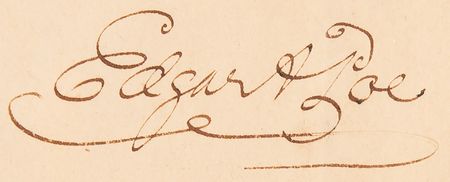 Edgar A Poe